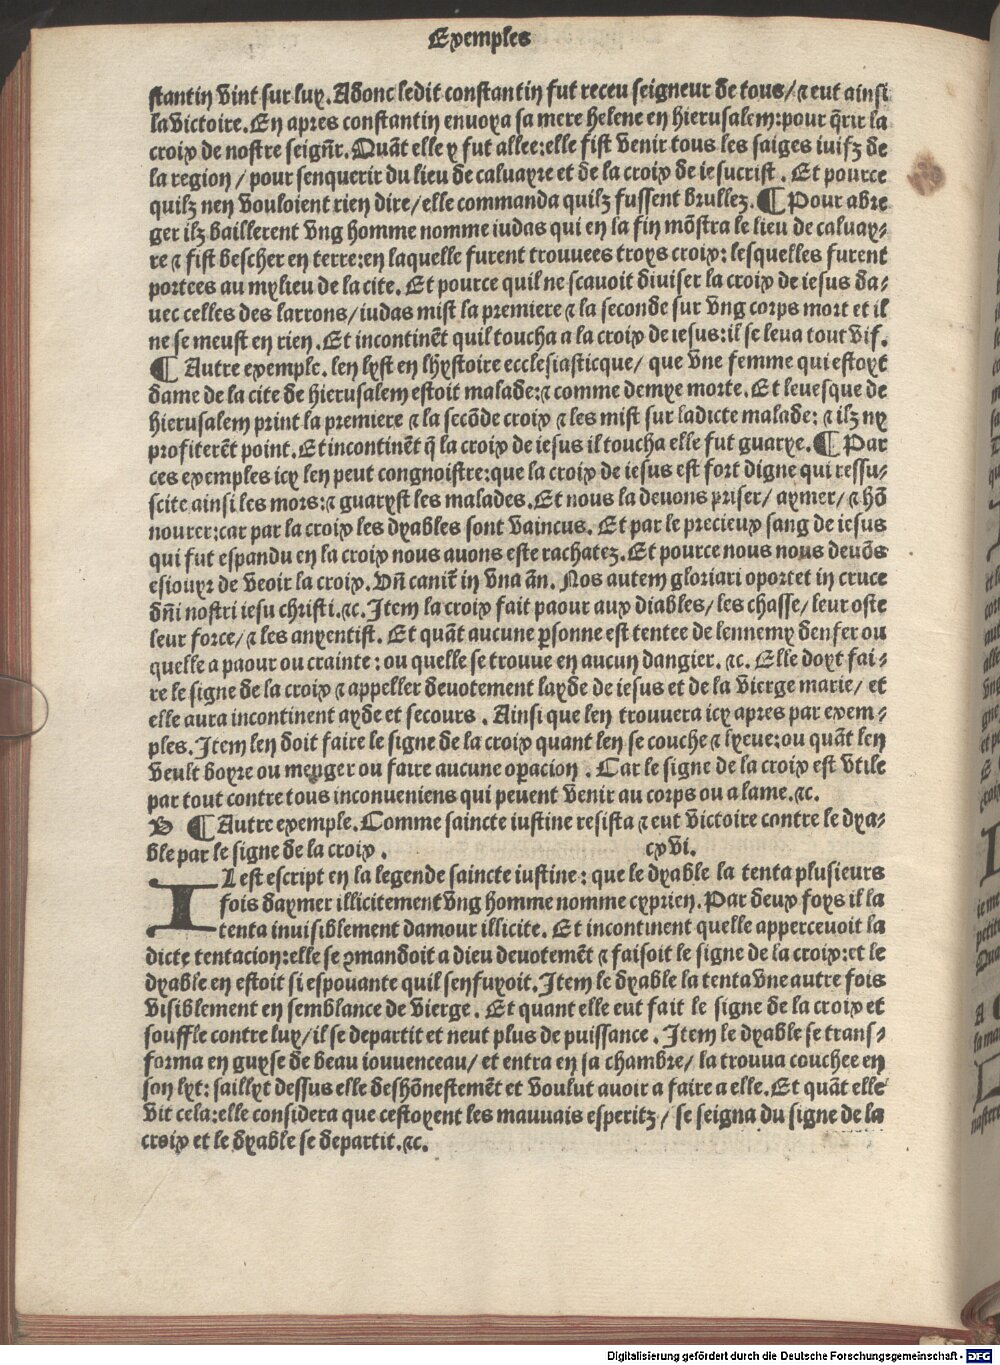 Exemples
stantin vint sur luy. Adonc ledit constantin fut receu seigneur de tous/ ⁊ eut ainsi
la victoire. En apres constantin enuoya sa mere helene en hierusalem: pour q̄rir la
croix de nostre seigñr. Quāt elle y fut allee: elle fist venir tous les saiges iuifz de
la region / pour senquerir du lieu de caluayre et de la croix de iesucrist . Et pource
quilz nen vouloient rien dire/ elle commanda quilz fussent brullez. ¶ Pour abre
ger ilz baillerent vng homme nomme iudas qui en la fin mōstra le lieu de caluay-
re ⁊ fist bescher en terre: en laquelle furent trouuees troys croix: lesquelles furent
portees au mylieu de la cite. Et pource quil ne scauoit diuiser la croix de iesus da-
uec celles des larrons/ iudas mist la premiere ⁊ la seconde sur vng corps mort et il
ne se meust en rien. Et incontinēt quil toucha a la croix de iesus: il se leua tout vif.
¶ Autre exemple. len lyst en lhystoire ecclesiasticque/ que vne femme qui estoyt
dame de la cite de hierusalem estoit malade: ⁊ comme demye morte. Et leuesque de
hierusalem print la premiere ⁊ la secōde croix ⁊ les mist sur ladicte malade: ⁊ ilz ny
profiterēt point. Et incontinēt q̄ la croix de iesus il toucha elle fut guarye. ¶ Par
ces exemples icy len peut congnoistre: que la croix de iesus est fort digne qui ressu-
scite ainsi les mors: ⁊ guaryst les malades. Et nous la deuons priser/ aymer/ ⁊ hō
nourer: car par la croix les dyables sont vaincus. Et par le precieux sang de iesus
qui fut espandu en la croix nous auons este rachatez. Et pource nous nous deuōs
esiouyr de veoir la croix. Vñ caniť in vna ān. Nos autem gloriari oportet in cruce
dñi nostri iesu christi. ⁊c. Item la croix fait paour aux diables/ les chasse/ leur oste
leur force/ ⁊ les anyentist. Et quāt aucune ꝑsonne est tentee de lennemy denfer ou
quelle a paour ou crainte : ou quelle se trouue en aucun dangier. ⁊c. Elle doyt fai-
re le signe de la croix ⁊ appeller deuotement layde de iesus et de la vierge marie/ et
elle aura incontinent ayde et secours . Ainsi que len trouuera icy apres par exem-
ples. Item len doit faire le signe de la croix quant len se couche ⁊ lyeue: ou quāt len
veult boyre ou menger ou faire aucune oꝑacion . Car le signe de la croix est vtile
par tout contre tous inconueniens qui peuent venir au corps ou a lame. ⁊c.
B ¶ Autre exemple. Comme saincte iustine resista ⁊ eut victoire contre le dya-
ble par le signe de la croix . cxvi.
Il est escript en la legende saincte iustine : que le dyable la tenta plusieurs
fois daymer illicitement vng homme nomme cyprien. Par deux foys il la
tenta inuisiblement damour illicite. Et incontinent quelle apperceuoit la
dicte tentacion: elle se ꝯmandoit a dieu deuotemēt ⁊ faisoit le signe de la croix: et le
dyable en estoit si espouante quil senfuyoit. Item le dyable la tenta vne autre fois
visiblement en semblance de vierge . Et quant elle eut fait le signe de la croix et
souffle contre luy/ il se departit et neut plus de puissance . Item le dyable se trans-
forma en guyse de beau iouuenceau/ et entra en sa chambre/ la trouua couchee en
son lyt: saillyt dessus elle deshōnestemēt et voulut auoir a faire a elle. Et quāt elle
vit cela: elle considera que cestoyent les mauuais esperitz/ se seigna du signe de la
croix et le dyable se departit. ⁊c.
Digitalisierung gefördert durch die Deutsche Forschungsgemeinschaft - DFG